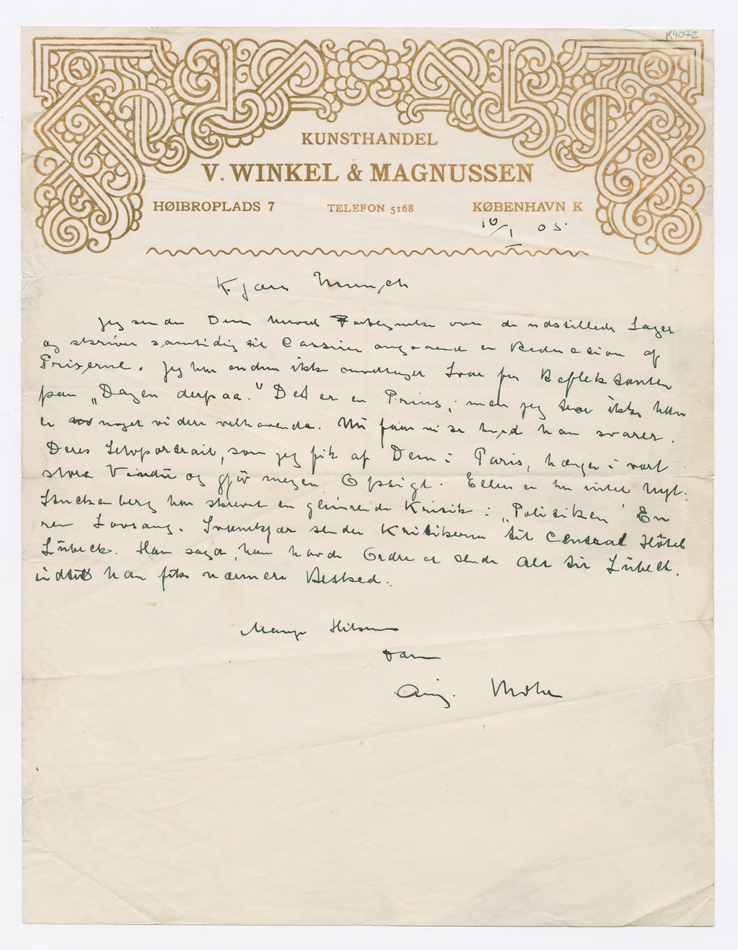 K4072
KUNSTHANDEL
V. WINKEL & MAGNUSSEN
HØIBROPLADS 7 TELEFON 5168 KØBENHAVN K
16/1 05
Kjære Munch
Jeg sender Dem hermed Fortegnelse over de udstillede Sager
og skriver samtidig til Cassirer angaaende en Reduction af
Priserne. Jeg har endnu ikke modtaget Svar fra Reflektanten
paa „Dagen derpaa." Det er en Prins, men jeg tror ikke han
er noget videre velhavende. Nu faar vi se hvad han svarer.
Deres Selvportrait, som jeg fik af Dem i Paris, hænger i vort
store Vindu og gjør megen Opsigt. Ellers er her intet Nyt.
Stuckenberg har skrevet en glimrende Kritik i „Politiken" En
ren Lovsang. sender Kritikerne til Central Hôtel
Lübeck. Han sagde, han havde Ordre at sende Alt til Lübeck,
indtil han fik nærmere Besked.
Mange Hilsner
Aug.